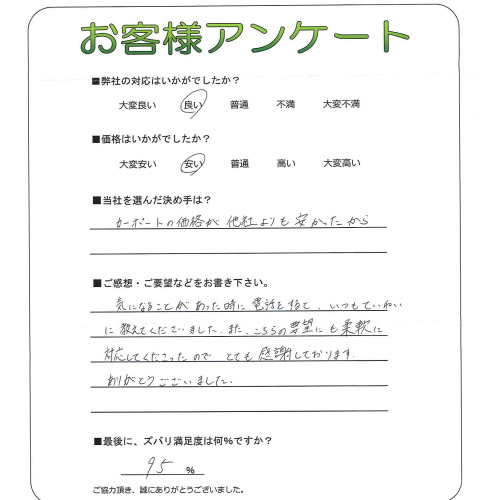 お客様アンケート
■弊社の対応はいかがでしたか？
大変良い 良い 普通 不満 大変不満
■価格はいかがでしたか？
大変安い 安い 普通 高い 大変高い
■当社を選んだ決め手は？
カーポートの価格が他社よりも安かったから
■ご感想・ご要望などをお書き下さい。
気になることがあった時に電話を掛て、いつもていねい
に教えてくださいました。また、こちらの要望にも柔軟に
対応してくださったので とても感謝しております。
ありがとうございました。
■最後に、ズバリ満足度は何%ですか？
95 %
ご協力頂き、誠にありがとうございました。